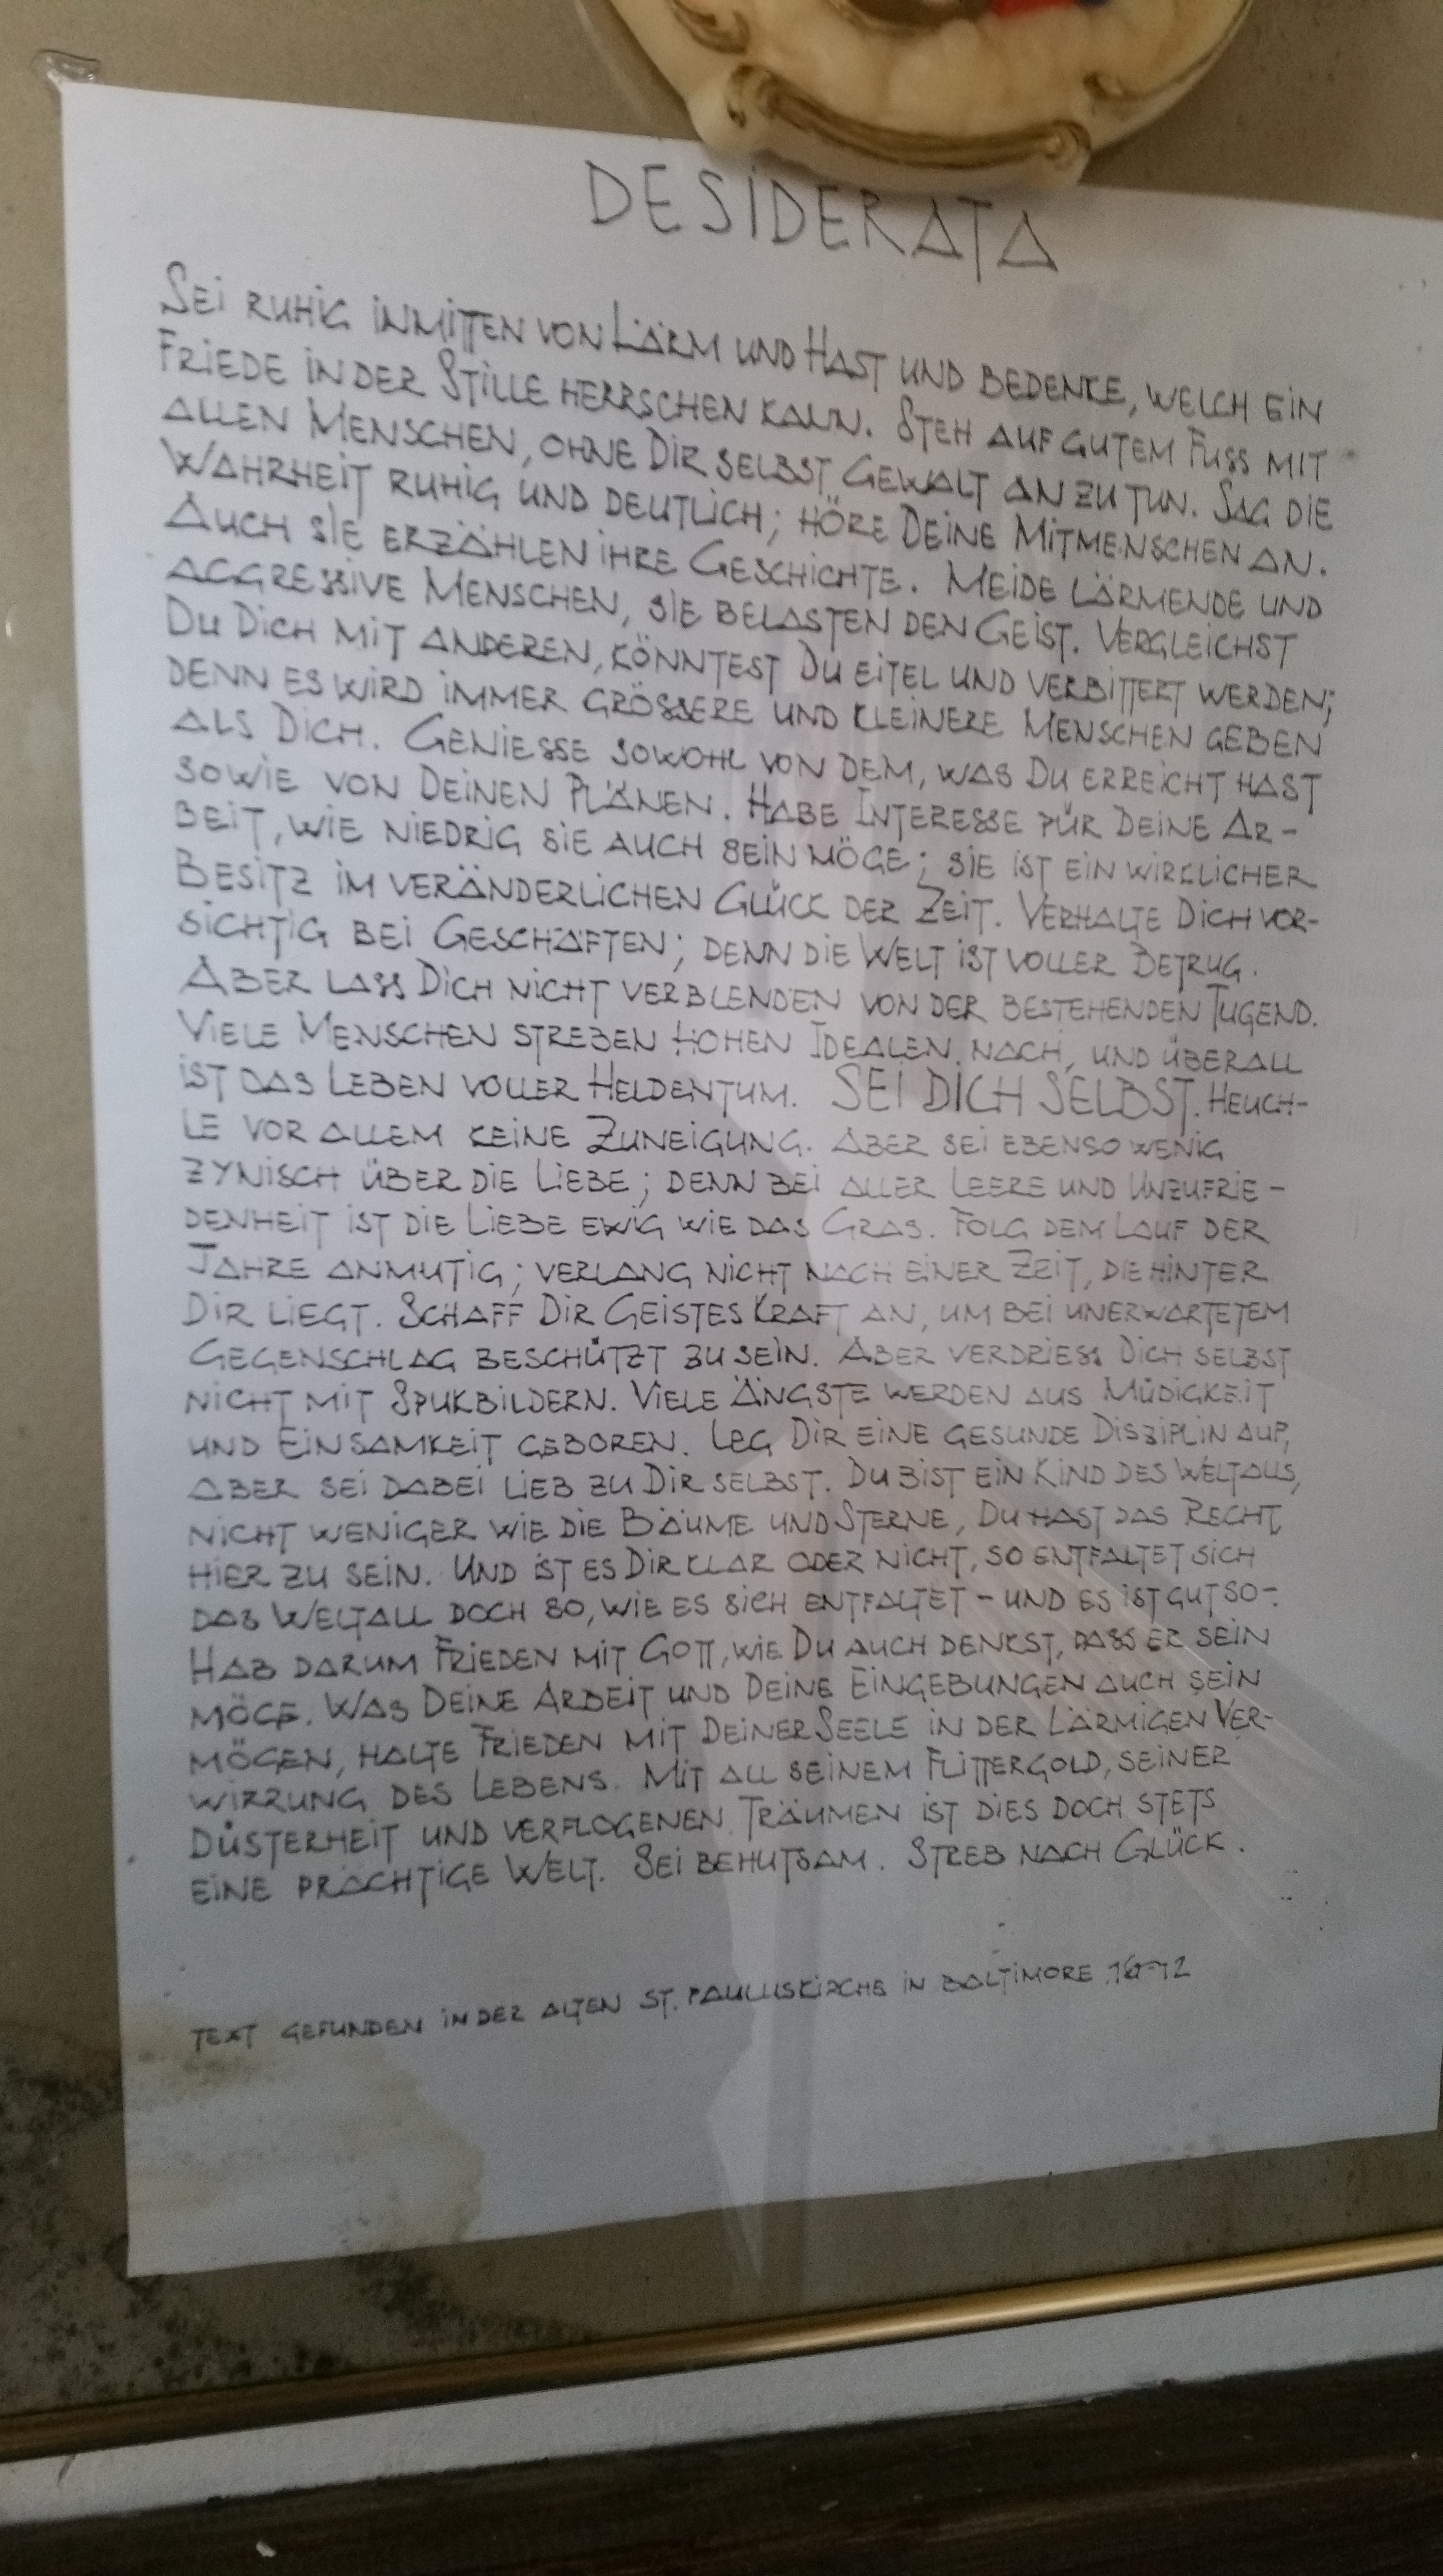 DESIDERATA
SEI RUHIG INMITTEN VON LÄRM UND HAST UND BEDENKE, WELCH EIN
FRIEDE IN DER STILLE HERRSCHEN KANN. STEH AUF GUTEM FUSS MIT
ALLEN MENSCHEN, OHNE DIR SELBST GEWALT ANZUTUN. SAG DIE
WAHRHEIT RUHIG UND DEUTLICH; HÖRE DEINE MITMENSCHEN AN.
AUCH SIE ERZÄHLEN IHRE GESCHICHTE. MEIDE LÄRMENDE UND
AGGRESSIVE MENSCHEN, SIE BELASTEN DEN GEIST. VERGLEICHST
DU DICH MIT ANDEREN, KÖNNTEST DU EITEL UND VERBITTERT WERDEN;
DENN ES WIRD IMMER GRÖSSERE UND KLEINERE MENSCHEN GEBEN
ALS DICH. GENIESSE SOWOHL VON DEM, WAS DU ERREICHT HAST
SOWIE VON DEINEN PLÄNEN. HABE INTERESSE FÜR DEINE AR-
BEIT, WIE NIEDRIG SIE AUCH SEIN MÖGE; SIE IST EIN WIRKLICHER
BESITZ IM VERÄNDERLICHEN GLÜCK DER ZEIT. VERHALTE DICH VOR-
SICHTIG BEI GESCHÄFTEN; DENN DIE WELT IST VOLLER BETRUG.
ABER LASS DICH NICHT VERBLENDEN VON DER BESTEHENDEN TUGEND.
VIELE MENSCHEN STREBEN HOHEN IDEALEN NACH, UND ÜBERALL
IST DAS LEBEN VOLLER HELDENTUM. SEI DICH SELBST. HEUCH-
LE VOR ALLEM KEINE ZUNEIGUNG. ABER SEI EBENSO WENIG
ZYNISCH ÜBER DIE LIEBE; DENN BEI ALLER LEERE UND UNZUFRIE-
DENHEIT IST DIE LIEBE EWIG WIE DAS GRAS. FOLG DEM LAUF DER
JAHRE ANMUTIG; VERLANG NICHT NACH EINER ZEIT, DIE HINTER
DIR LIEGT. SCHAFF DIR GEISTESKRAFT AN, UM BEI UNERWARTETEM
GEGENSCHLAG BESCHÜTZT ZU SEIN. ABER VERDRIESS DICH SELBST
NICHT MIT SPUKBILDERN. VIELE ÄNGSTE WERDEN AUS MÜDIGKEIT
UND EINSAMKEIT GEBOREN. LEG DIR EINE GESUNDE DISZIPLIN AUF,
ABER SEI DABEI LIEB ZU DIR SELBST. DU BIST EIN KIND DES WELTALLS,
NICHT WENIGER WIE DIE BÄUME UND STERNE, DU HAST DAS RECHT
HIER ZU SEIN. UND IST ES DIR KLAR ODER NICHT, SO ENTFALTET SICH
DAS WELTALL DOCH SO, WIE ES SICH ENTFALTET - UND ES IST GUT SO -.
HAB DARUM FRIEDEN MIT GOTT, WIE DU AUCH DENKST, DASS ER SEIN
MÖGE. WAS DEINE ARBEIT UND DEINE EINGEBUNGEN AUCH SEIN
MÖGEN, HALTE FRIEDEN MIT DEINER SEELE IN DER LÄRMIGEN VER-
WIRRUNG DES LEBENS. MIT ALL SEINEM FLITTERGOLD, SEINER
DÜSTERHEIT UND VERFLOGENEN TRÄUMEN IST DIES DOCH STETS
EINE PRÄCHTIGE WELT. SEI BEHUTSAM. STREB NACH GLÜCK.
TEXT GEFUNDEN IN DER ALTEN ST. PAULUSKIRCHE IN BALTIMORE